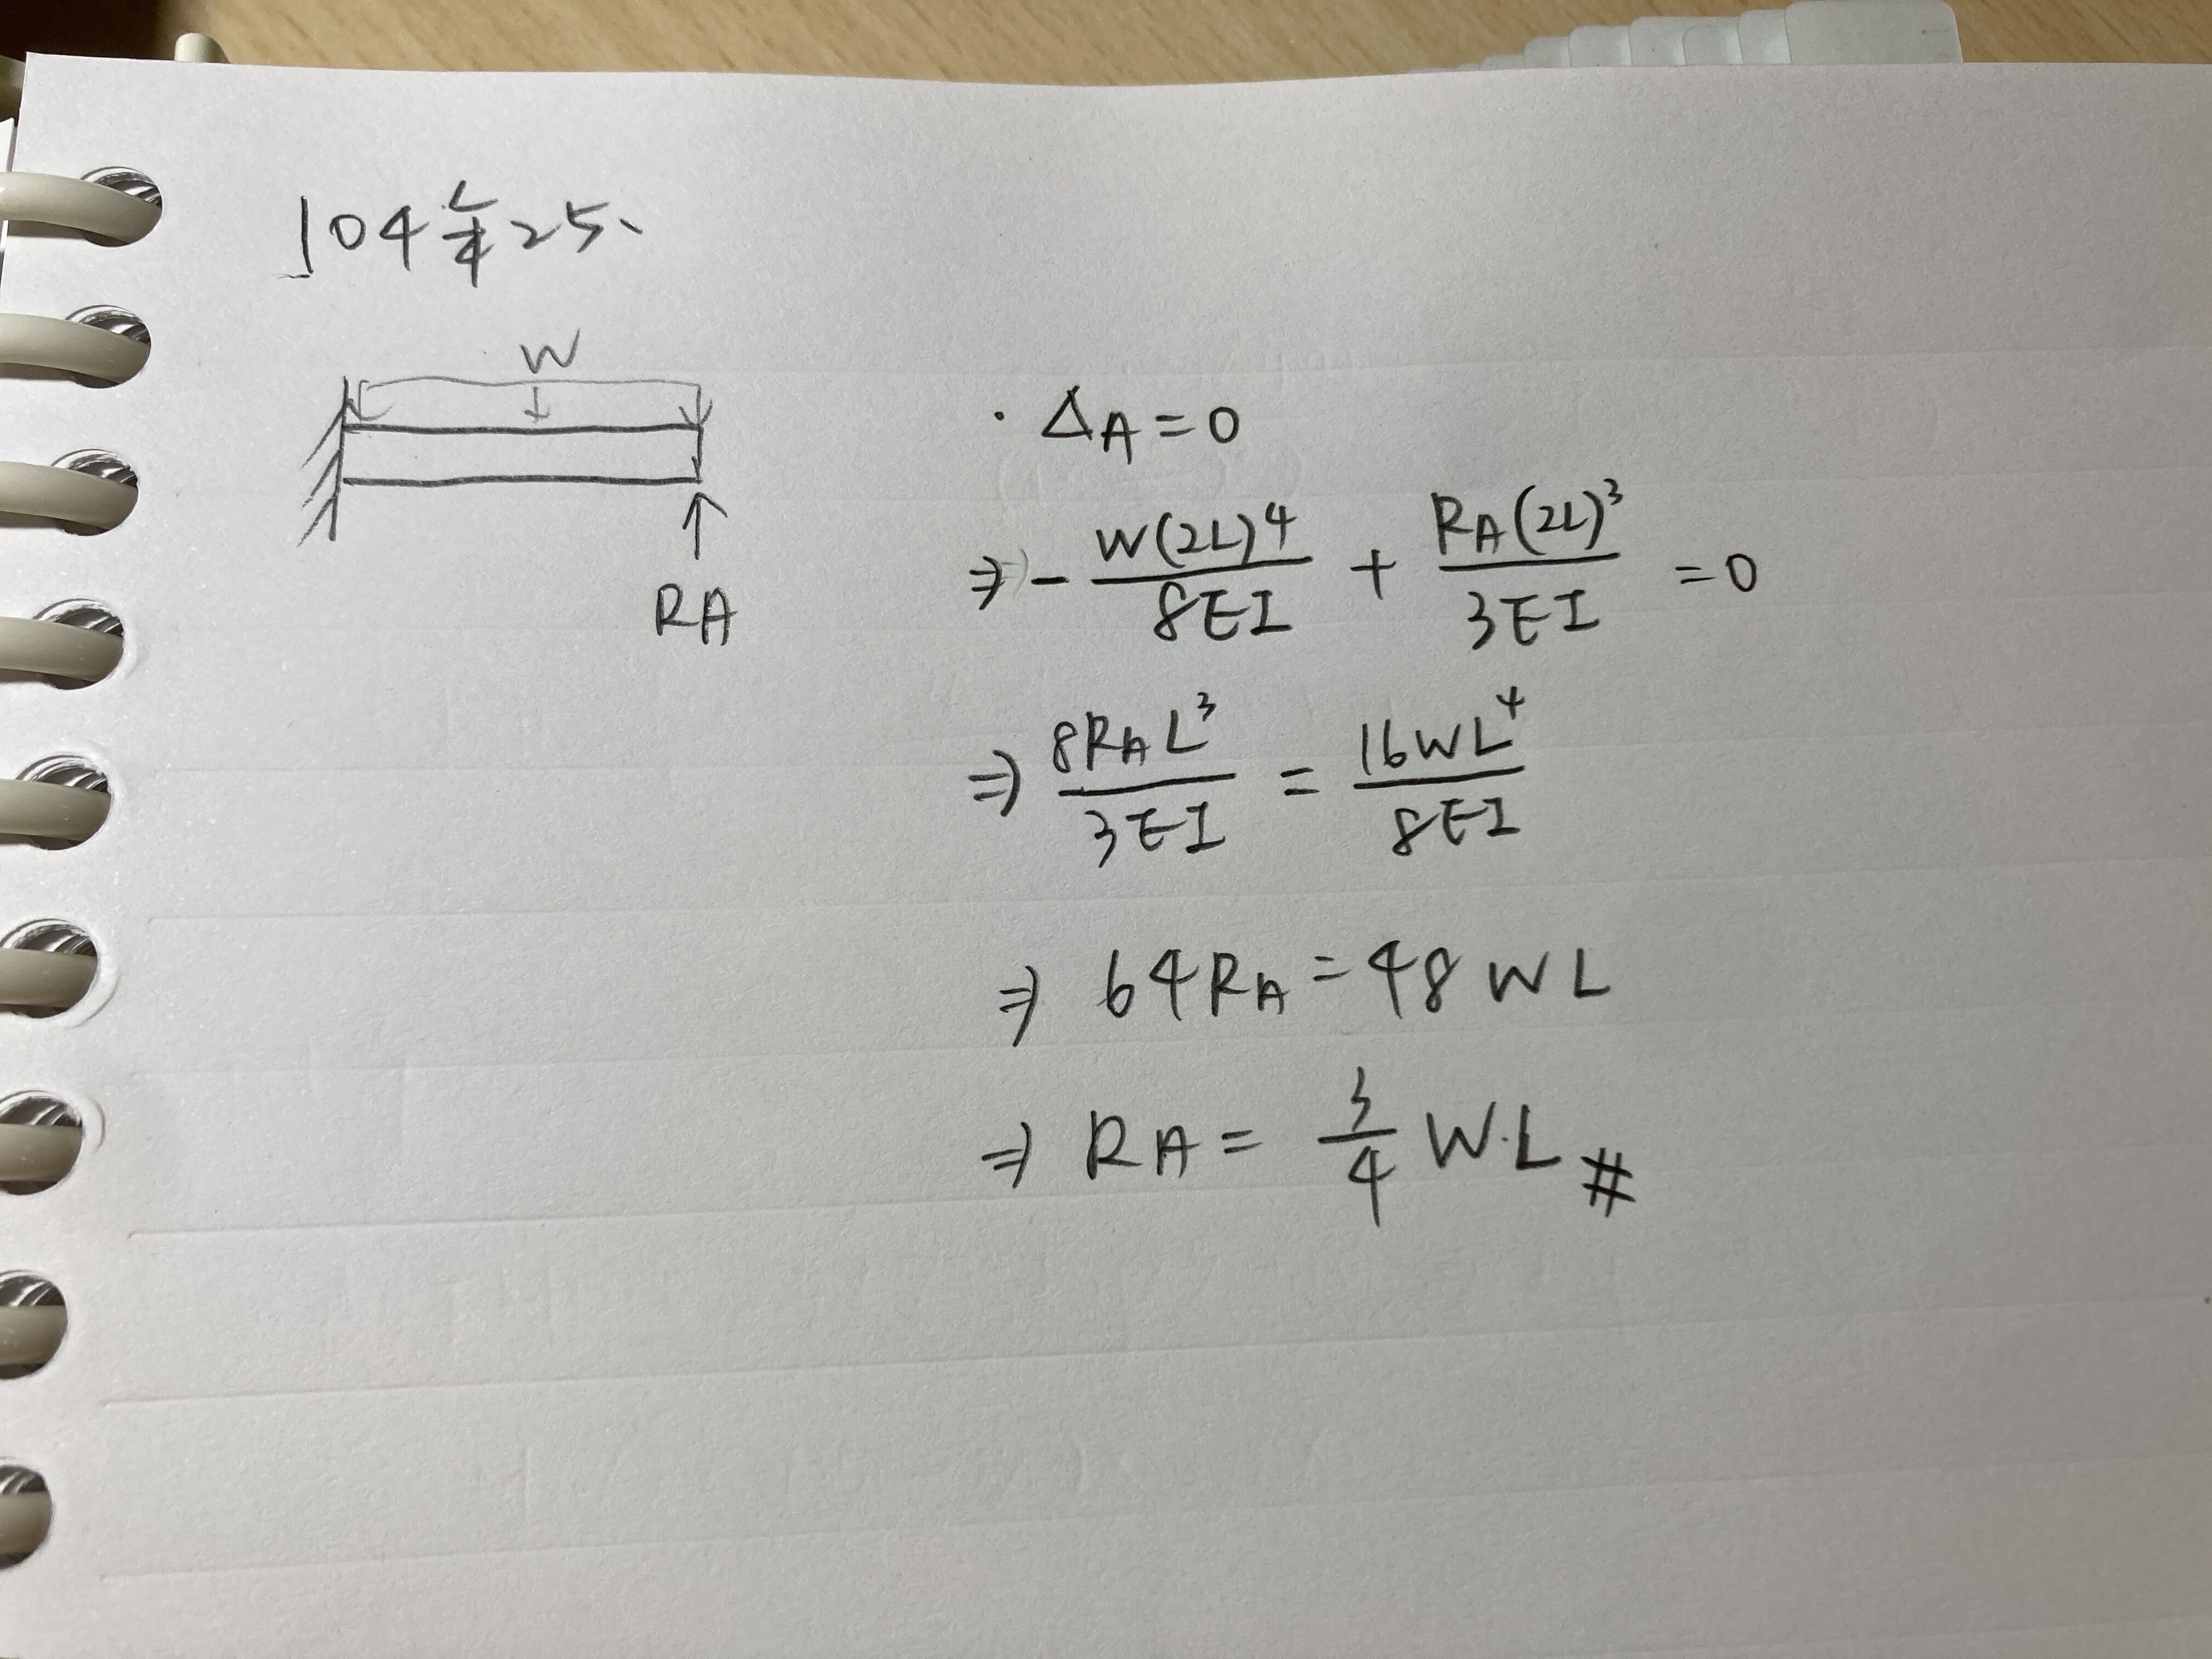 104年25、
W
RA
· ΔA=0
⇒ - W(2L)⁴/8EI + RA(2L)³/3EI = 0
⇒ 8RAL³/3EI = 16WL⁴/8EI
⇒ 64RA = 48WL
⇒ RA = 3/4 W·L #